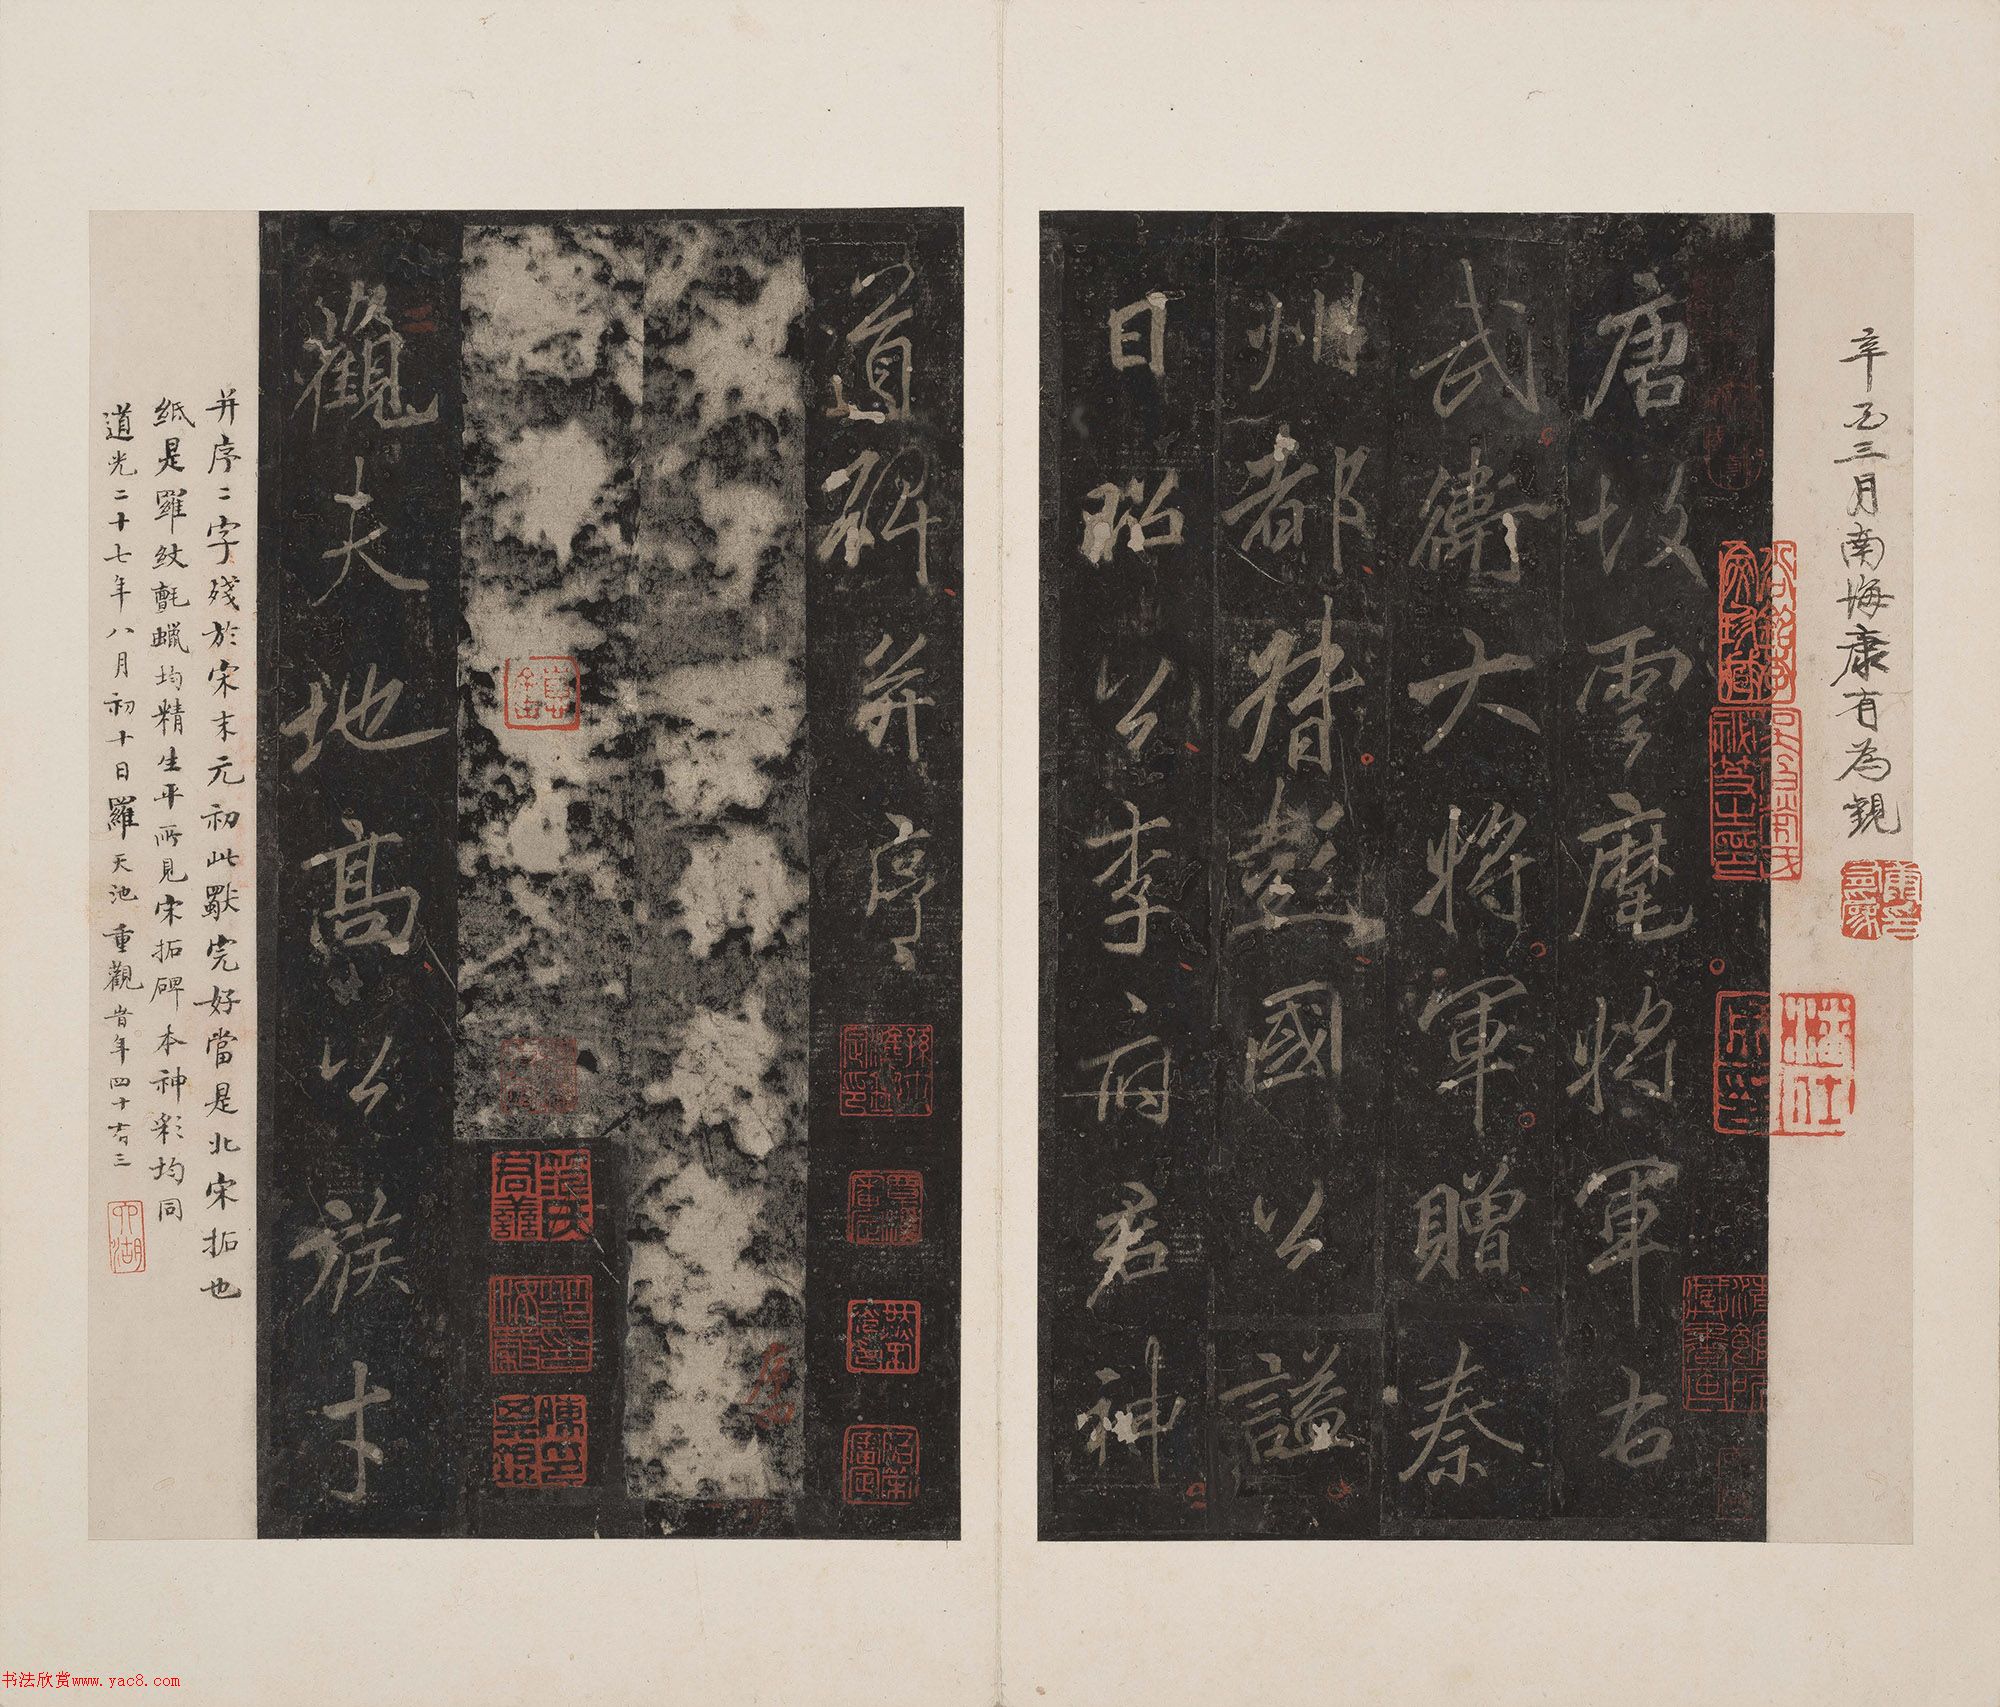 辛巳三月南海康有為觀
唐故雲麾將軍右
武衛大將軍贈秦
州都督彭國公謚
曰昭公李府君神
道碑并序
觀夫地高公族才
并序二字殘於宋末元初此獸完好當是北宋拓也
紙是羅紋氈蠟均精生平所見宋拓碑本神彩均同
道光二十七年八月初十日羅天池重觀時年四十有三
六湖
書法欣賞www.yac8.com